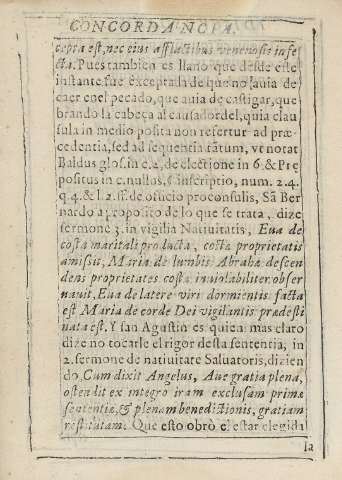 CONCORDANCIA.
cepta est, nec eius afflactibus venenosis infe
cta. Pues tambien es llano que desde este
instante fue exceptada de que no auia de
caer en el pecado, que auia de castigar, que
brando la cabeça al causadordel, quia clau
sula in medio posita non refertur ad præ
cedentia, sed ad sequentia tãtum, vt notat
Baldus glos. in c. 2, de electione in 6. & Pre
positus in c. nullus, § inscriptio, num. 2. 4.
q. 4. & l. 2. ff. de officio proconsulis, Sã Ber
nardo a proposito de lo que se trata, dize
sermone 3. in vigilia Natiuitatis, Eua de
costa maritali producta, costæ proprietatis
amisit, Maria de lumbis Abrahæ descen
dens proprietates costæ inuiolabiliter obser
uauit, Eua de latere viri dormientis facta
est Maria de corde Dei vigilantis prædesti
nata est. Y san Agustin es quien mas claro
dize no tocarle el rigor desta sententia, in
2. sermone de natiuitate Saluatoris, dizien
do. Cum dixit Angelus, Aue gratia plena,
ostendit ex integro iram exclusam primæ
sententiæ, & plenam benedictionis, gratiam
restitutam. Que esto obrò el estar elegida
la